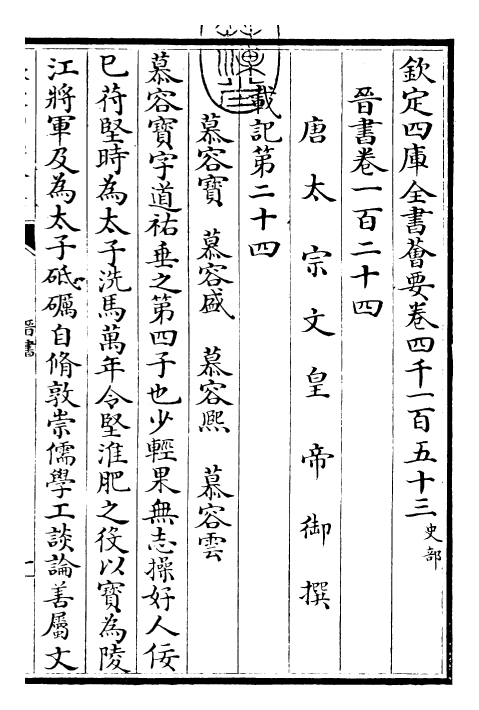 欽定四庫全書薈要卷四千一百五十三史部
晉書卷一百二十四
唐太宗文皇帝御撰
載記第二十四
慕容寶 慕容盛 慕容熈 慕容雲
慕容寶字道祐垂之第四子也少輕果無志操好人佞
已苻堅時為太子洗馬萬年令堅淮肥之役以寶為陵
江將軍及為太子砥礪自脩敦崇儒學工談論善屬文
晉書